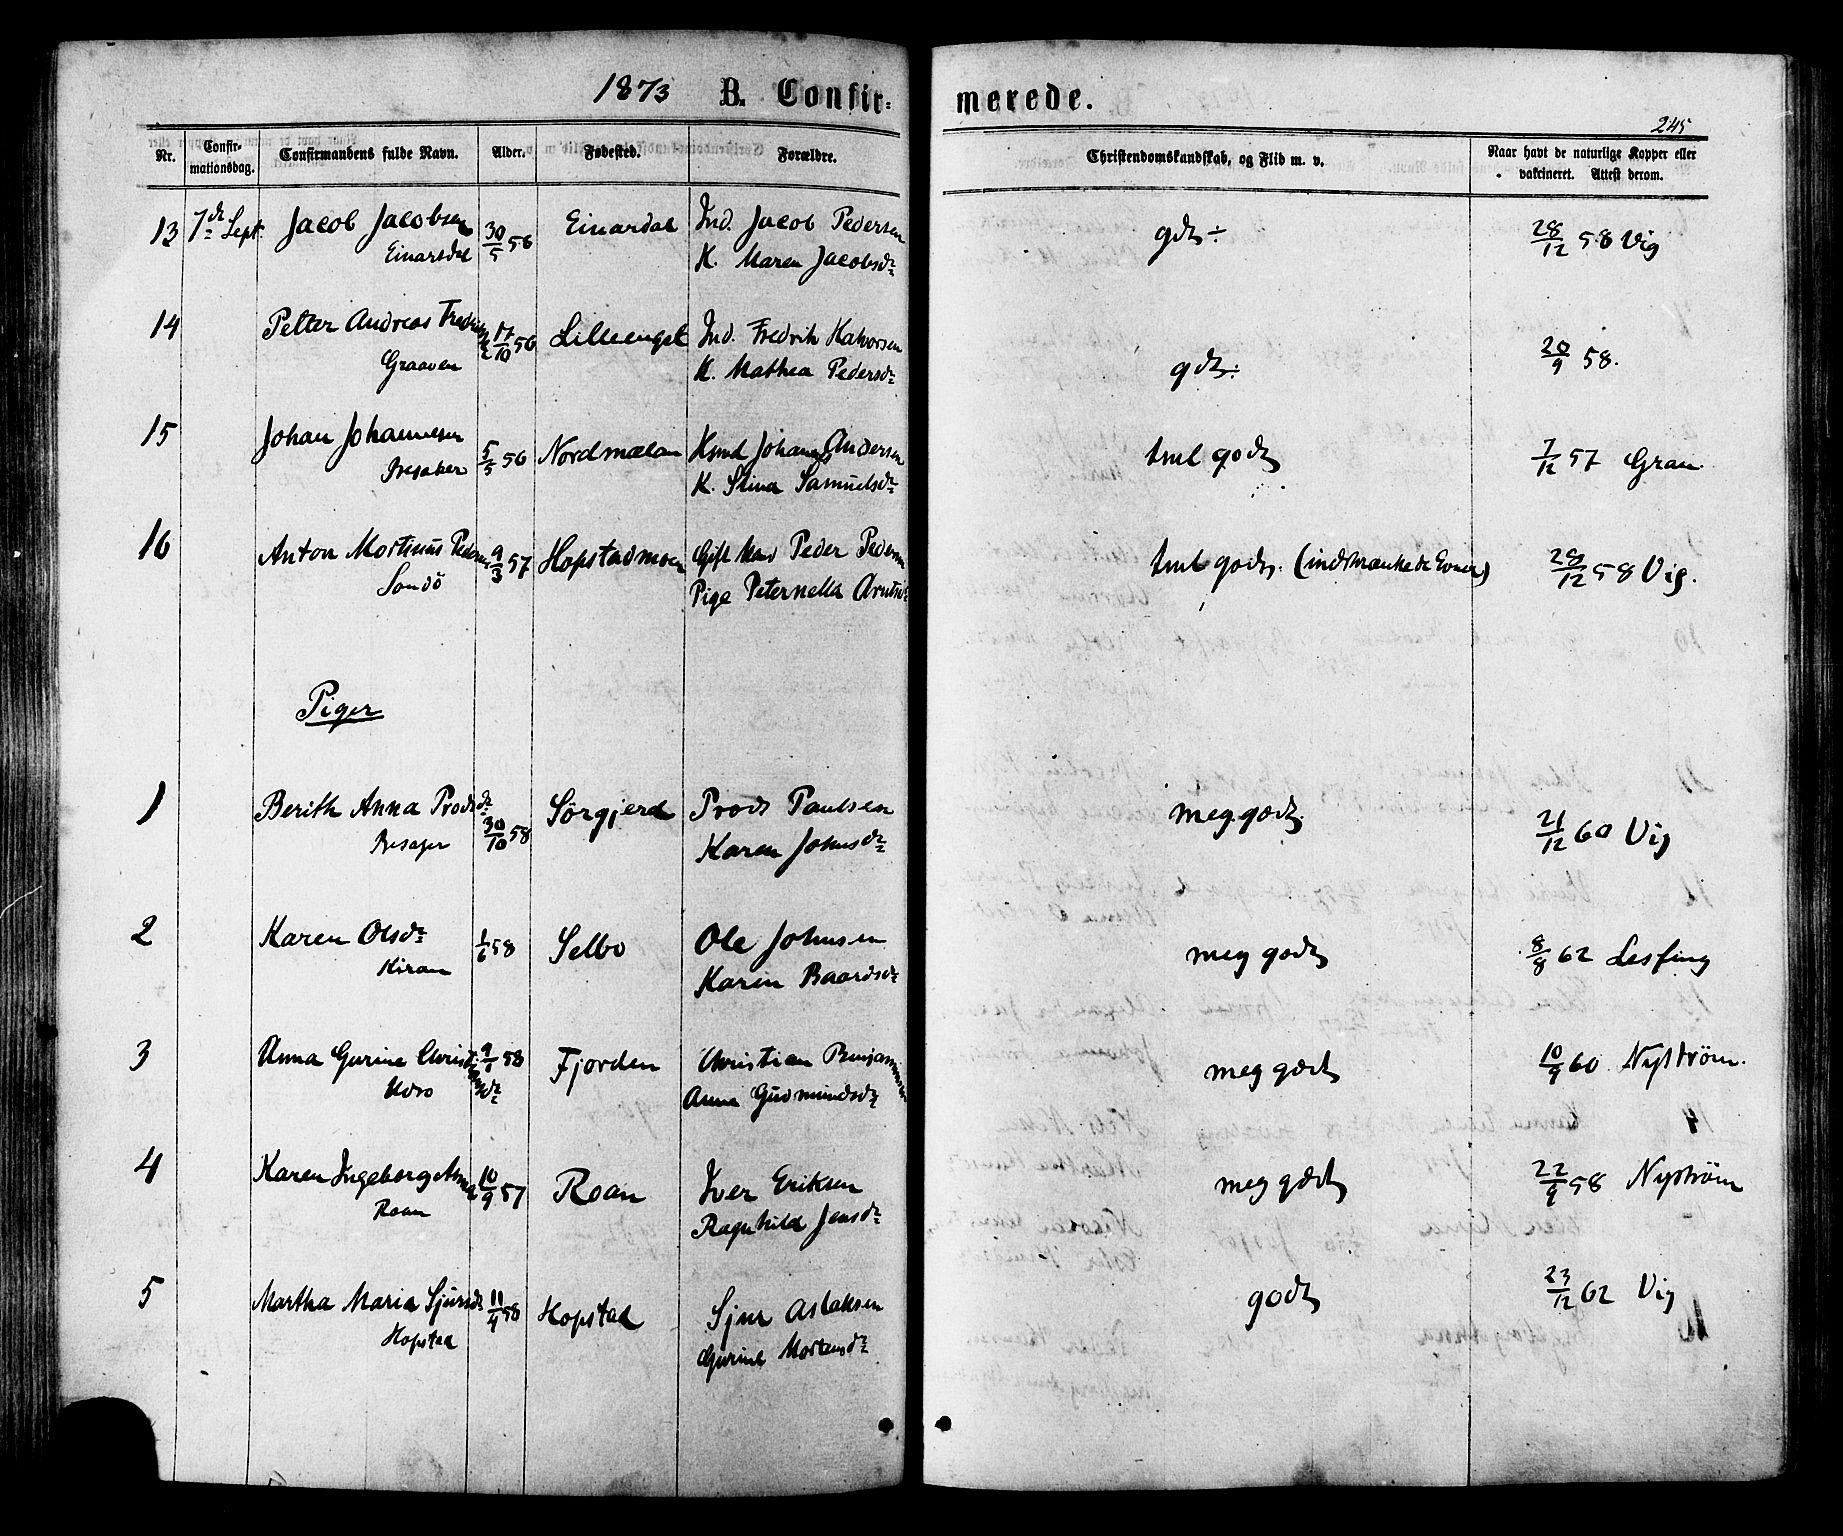 1873 B. Confir-
merede.
245
Nr. Confir-mationsdag. Confirmandens fulde Navn. Alder. Fødested. Forældre. Christendomskundskab, og Flid m. v. Naar havt de naturlige Kopper eller vakcineret. Attest derom.
13 7de Sept. Jacob Jacobsen 30/5 56 Einardal Ind. Jacob Pedersen gdt÷ 28/12 58 Vig
Einarsdal K. Maren Jacobsdr
14 Petter Andreas Fredriksen 17/10 56 Lilleenget Ind. Fredrik Halvorsen gdt÷ 20/9 58.
Graaven K. Mathea Pedersdr
15 Johan Johannesen 5/5 56 Nordmælan Johannes Andersen tml godt 7/12 57 Gran
Besaker K. Stina Samuelsdr
16 Anton Mortinus Pedersen 9/3 57 Hopstadmoen Gift Mand Peder Pedersen tml godt. (indskrænkede Evner) 28/12 58 Vig.
Sandö Pige Peternella Arntsdr
Piger
1 Berith Anna Prodsdr 30/10 58 Sörgjerd Prods Paulsen meg godt 21/12 60 Vig
Besager Karen Johnsdr
2 Karen Olsdr 1/6 58 Selbo Ole Johnsen meg godt 8/8 62 Lesfing
Kiran Karen Baardsdr
3 Anna Gurine Christiansdr 9/1 58 Fjorden Christian Benjaminsen meg godt 10/9 60 Nyström.
Hovo Anna Gudmundsdr
4 Karen Ingeborg Anna 10/9 57 Roan Iver Eriksen meg godt 22/9 58 Nyström
Roan Ragnhild Jensdr
5 Martha Maria Sjursdr 11/4 58 Hopstad Sjur Aslaksen godt 23/12 62 Vig
Hopstad Gurine Mortensdr